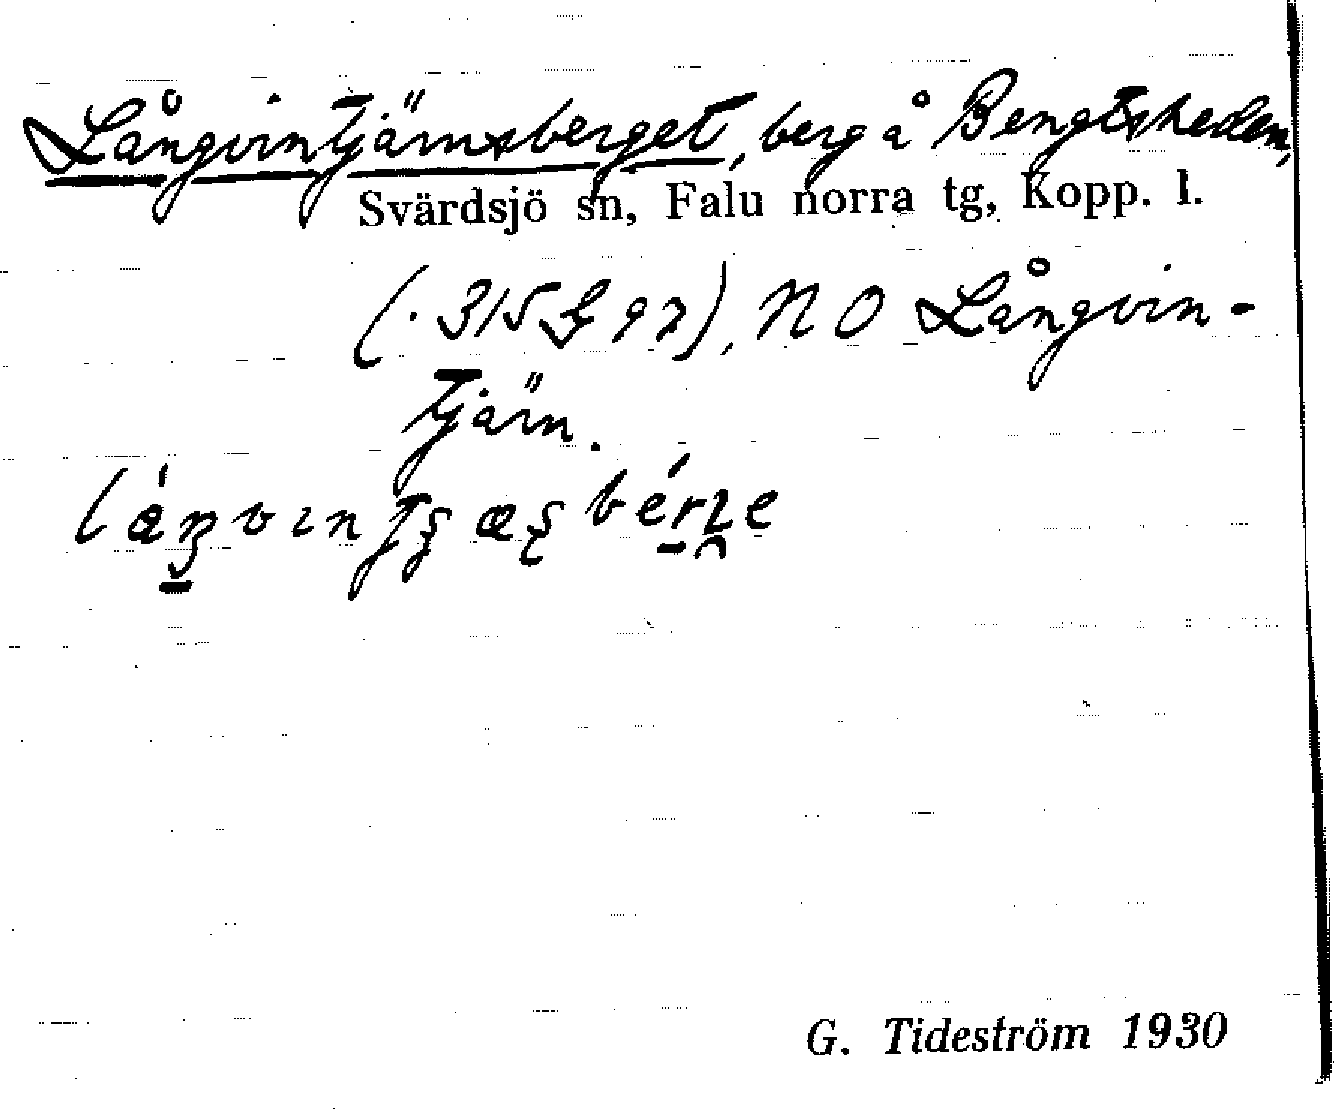 Långvintjärnsberget, berg å Bengtsheden,
Svärdsjö sn, Falu norra tg, Kopp. l.
(· 315 G 9 n), NO Långvin-
tjärn.
G. Tideström 1930